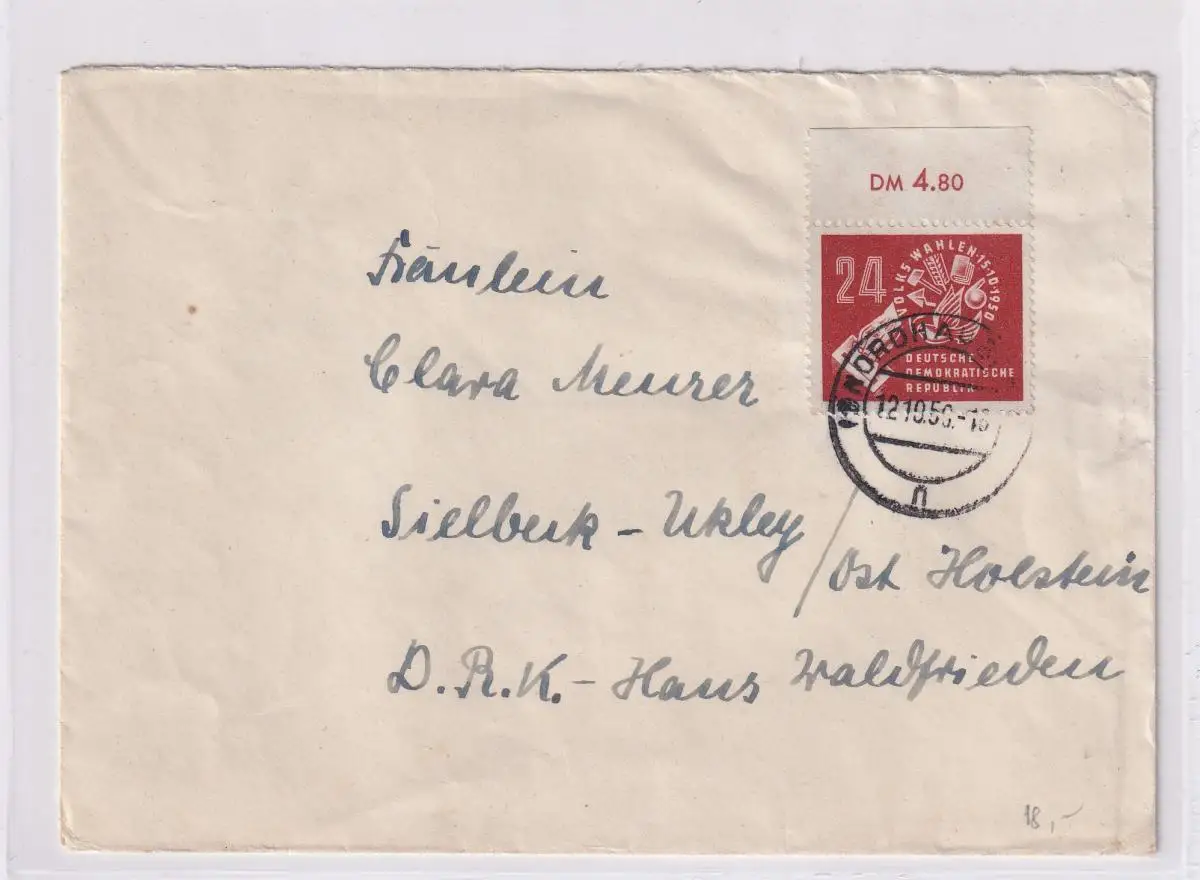 DM 4.80
24
VOLKSWAHLEN·15·10·1950
DEUTSCHE
DEMOKRATISCHE
REPUBLIK
12.10.50.-18
n
Fräulein
Clara Meurer
Sielbeck - Ukley / Ost Holstein
D.R.K. - Haus Waldfrieden
18,-